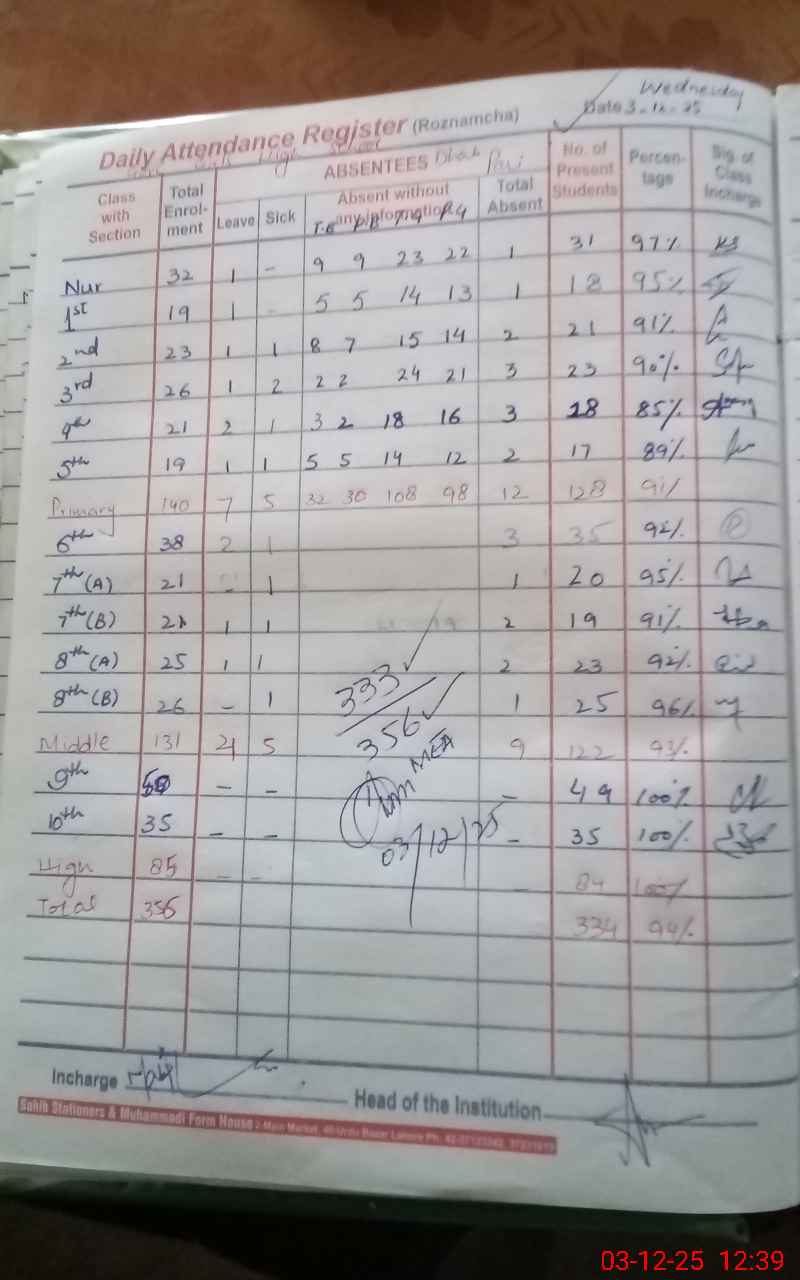 Wednesday
Daily Attendance Register (Roznamcha) Date 3-12-25
High School
Class with Section Total Enrol-ment ABSENTEES No. of Present Students Percen-tage Sig. of Class Incharge
Leave Sick Absent without any information Total Absent
Nur 32 1 - 9 9 23 22 1 31 97%
1st 19 1 - 5 5 14 13 1 18 95%
2nd 23 1 1 8 7 15 14 2 21 91%
3rd 26 1 2 2 2 24 21 3 23 90%
4th 21 2 1 3 2 18 16 3 18 85%
5th 19 1 1 5 5 14 12 2 17 89%
Primary 140 7 5 32 30 108 98 12 128 91%
6th 38 2 1 3 35 92%
7th (A) 21 - 1 1 20 95%
7th (B) 21 1 1 2 19 91%
8th (A) 25 1 1 2 23 92%
8th (B) 26 - 1 333 1 25 96%
Middle 131 4 5 356 9 122 93%
MEA
9th - - - 49 100%
10th 35 - - 03/12/25 - 35 100%
High 85 - - - 84 100%
Total 356 334 94%
Incharge Head of the Institution
Sahib Stationers & Muhammadi Form House 2-Main Market, 40-Urdu Bazar Lahore Ph:
03-12-25 12:39